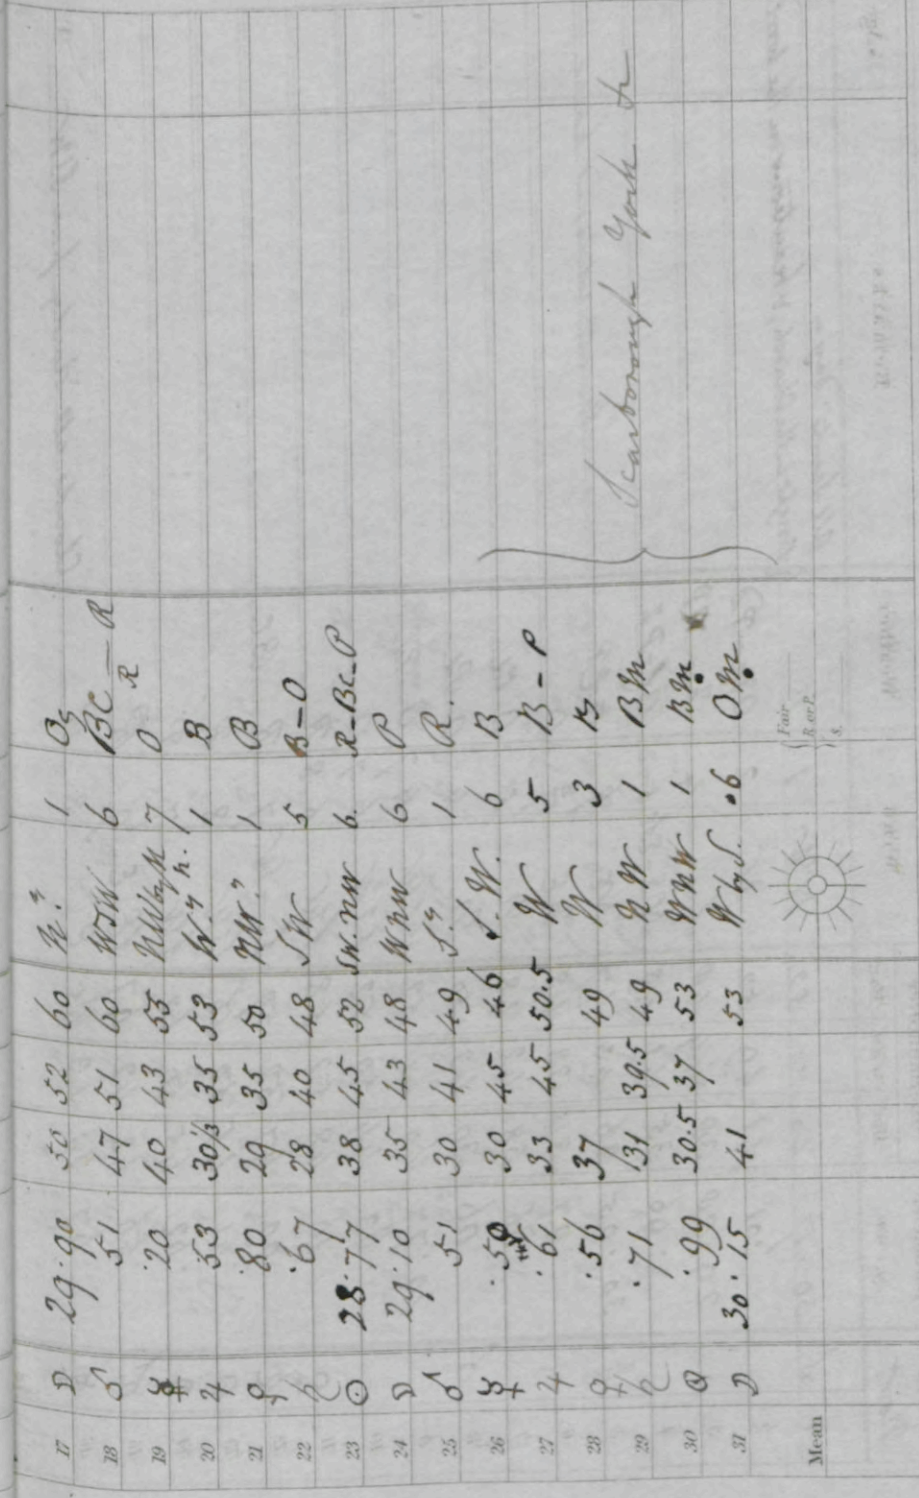 17 ☽ 29.90 50 52 60 N.? 1 Og
18 ♂ .51 47 51 60 WSW 6 BC — R R
19 ☿ .20 40 43 55 NWbyN 7 O
20 ♃ .53 30½ 35 53 W.? n. 1 B
21 ♀ .80 29 35 50 NW.? 1 B
22 ♄ .67 28 40 48 SW 5 B-O
23 ☉ 28.77 38 45 52 SW.NW 6. R-BC-P
24 ☽ 29.10 35 43 48 WNW 6 P
25 ♂ 51 30 41 49 S.? 1 R.
26 ☿ .50 30 45 46 S.W. 6 B
27 ♃ .61 33 45 50.5 W 5 B-P
28 ♀ .56 37 49 W 3 B
29 ♄ .71 31 39.5 49 NW 1 Bm
30 ☉ .99 30.5 37 53 WNW 1 Bm
31 ☽ 30.15 41 53 W by S. .6 Om
Scarborough York
Mean
Fair
R. or P.
S.